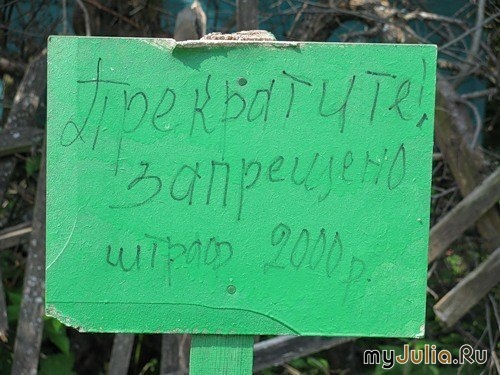 Прекратите!
запрещено
штраф 2000р.
myJulia.Ru